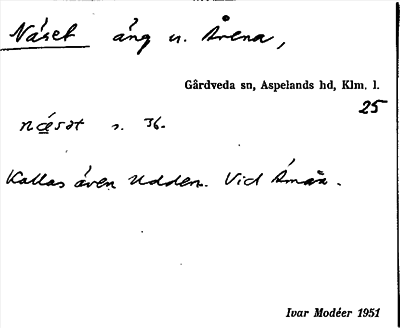 Näset äng u. Årena,
Gårdveda sn, Aspelands hd, Klm. l.
25
næ̀sət s. 36.
Kallas även Udden. Vid Åmån.
Ivar Modéer 1951